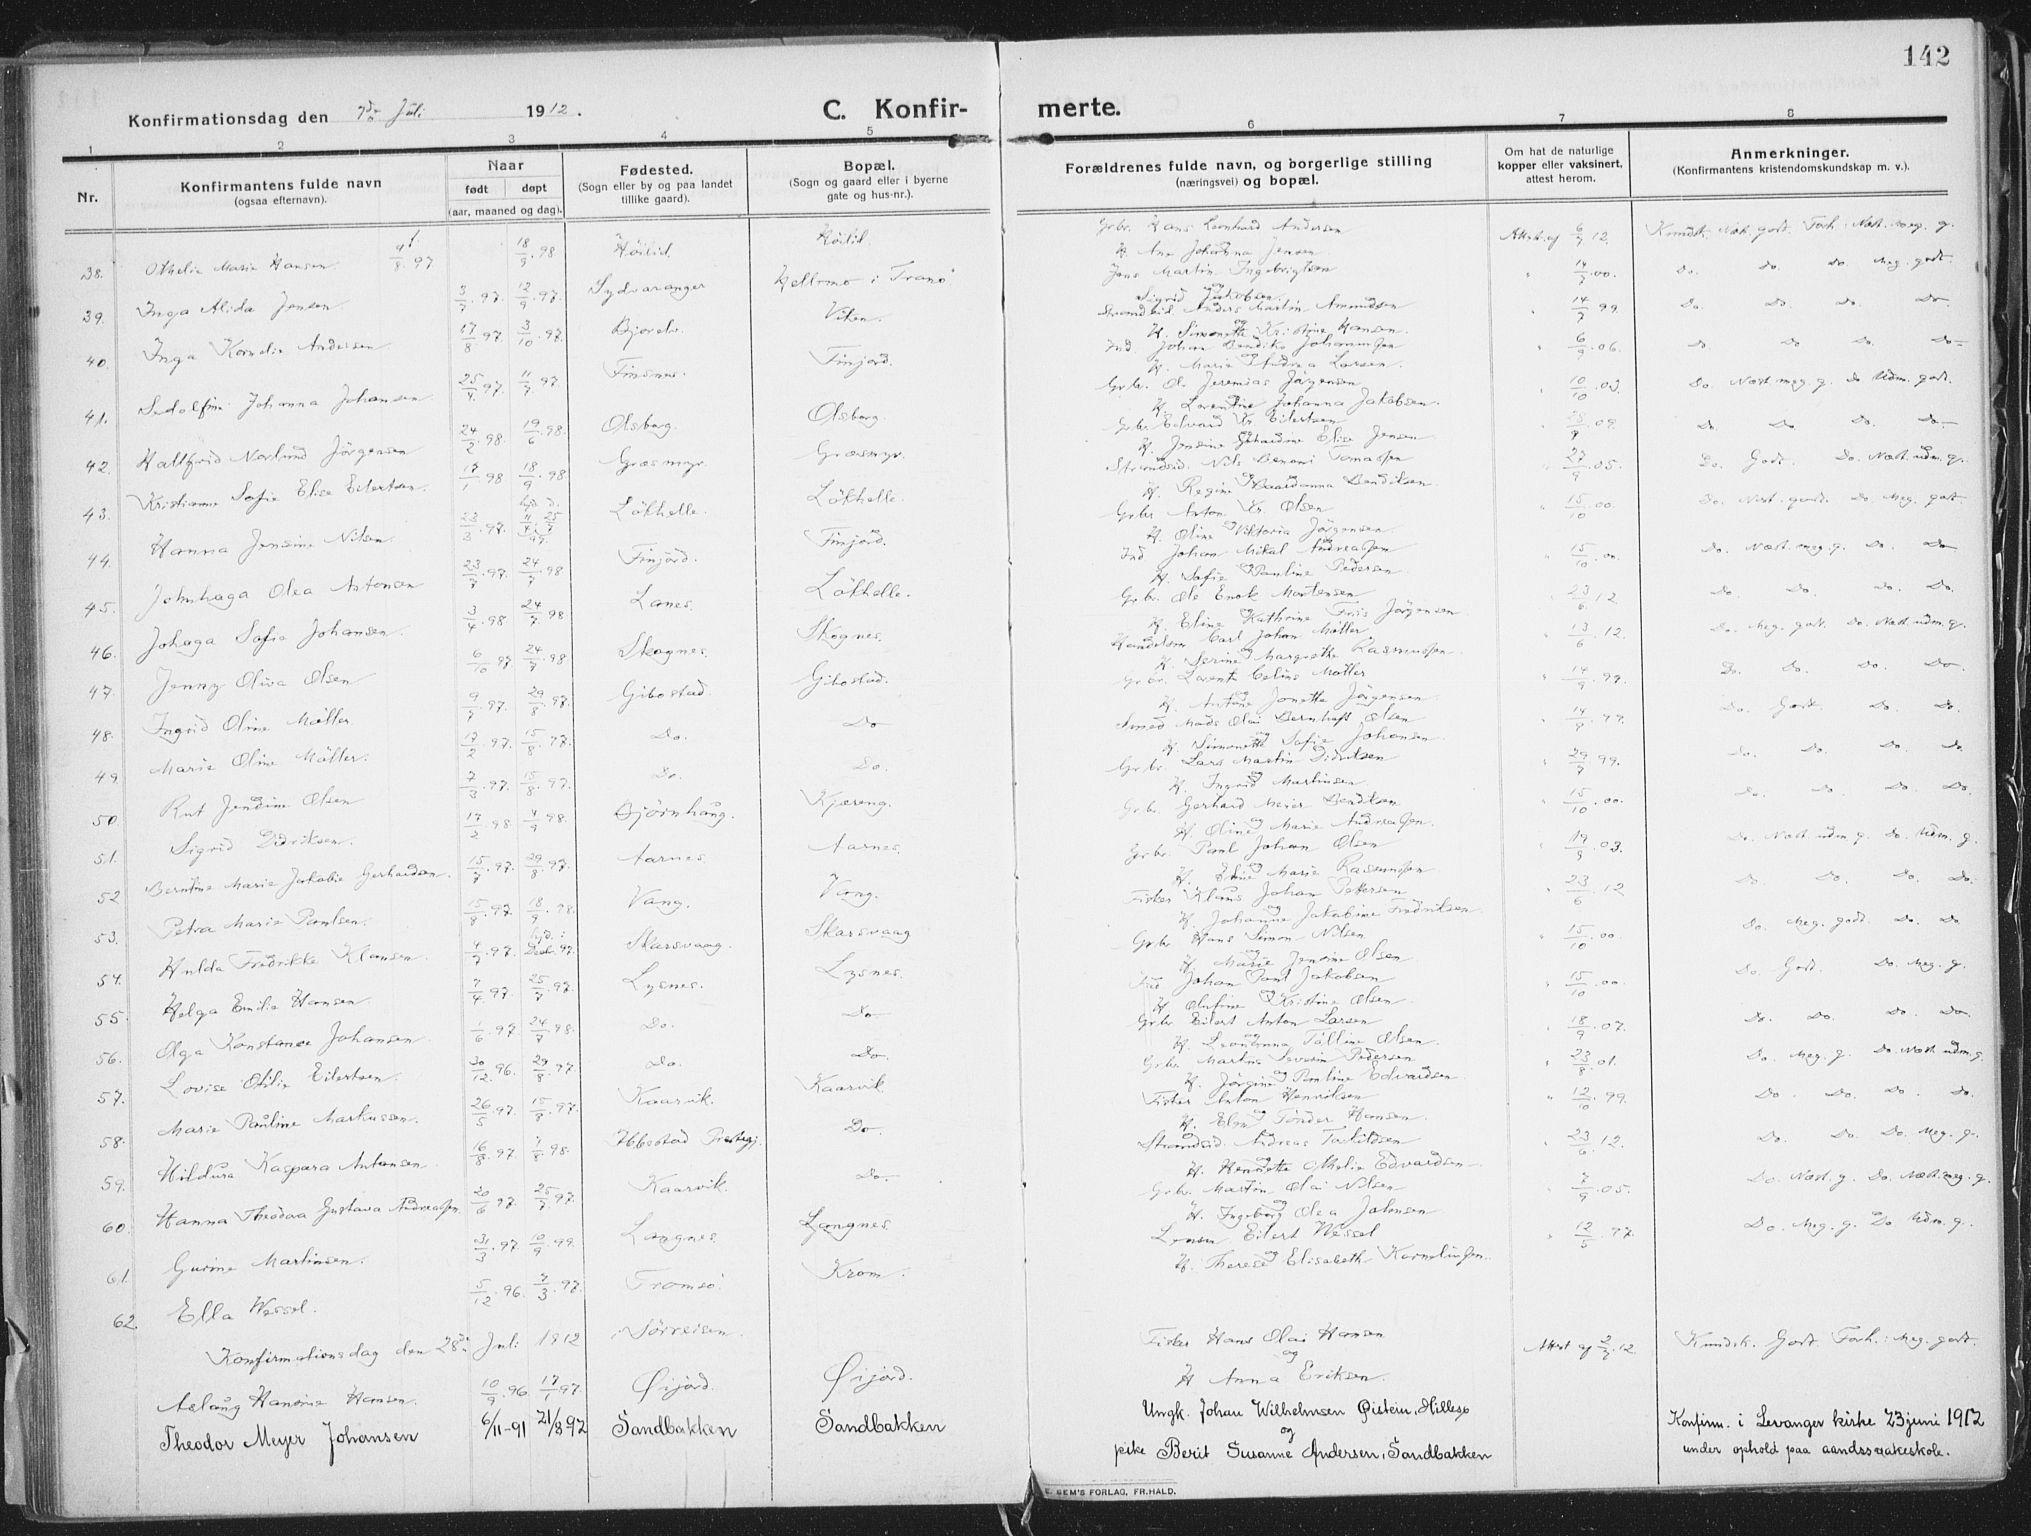 142
Konfirmationsdag den 7de Juli 1912.
C. Konfir-
merte.
1 2 3 4 5 6 7 8
Nr.
Konfirmantens fulde navn
(ogsaa efternavn).
Naar
født døpt
(aar, maaned og dag).
Fødested.
(Sogn eller by og paa landet
tillike gaard).
Bopæl.
(Sogn og gaard eller i byerne
gate og hus-nr.).
Forældrenes fulde navn, og borgerlige stilling
(næringsvei) og bopæl.
Om hat de naturlige
kopper eller vaksinert,
attest herom.
Anmerkninger.
(Konfirmantens kristendomskundskap m. v.).
38. Othelie Marie Hansen 4/8 97 18/9 98 Höilid. Höilid. Grbr. Hans Leonhard Andersen
H. Ane Johanna Jensen Attest af 6/7 12. Kundsk. Næst. godt. Forh. Næst. meg. g.
39. Inga Alida Jensen 3/7 97. 12/9 97. Sydvaranger Hellemo i Tranö Jens Martin Ingebrigtsen
Sigrid Jakobsen " 14/7 00. Do. Do. Do. Meg. godt.
40. Inga Kornelie Andersen 17/8 97. 3/10 97. Bjorelv. Viken. Strandsid. Anders Martin Amundsen
og
H. Simonette Kristine Hansen. " 14/7 99. Do. Do. Do. Do
41. Sedolfine Johanna Johansen 25/4 97. 11/7 97. Finsnes. Finjord. Ind. Johan Bendiks Johannesen
H. Marie Andrea Larsen. " 6/9 06. Do. Do Do. Do
42. Hallfrid Norlund Jörgensen 24/2 98. 19/6 98. Olsborg. Olsborg. Grbr. O. Jeremias Jörgensen
H. Lorentine Johanna Jakobsen. " 10/10 03. Do. Næst meg. g. Do Udm. godt.
43. Kristianne Sofie Elise Eilertsen. 17/1 98 18/9 98 Græsmyr. Græsmyr. Grbr. Edvard Kr. Eilertsen
H. Jensine Gerhardine Elise Jensen 09. Do. Do. Do. Do.
44. Hanna Jensine Nilsen. 23/3 97. Lökhelle. Lökhelle. Strandsid. Nils Benoni Tomassen
H. Regine Baardanna Bendiksen. " 27/9 05. Do. Godt. Do. Næst. udm. g.
45. Johnhaga Olea Antonsen 23/7 97. 24/7 98 Finjord. Finjord. Grbr Anton Kr. Olsen
H. Oline Viktoria Jörgensen. " 15/10 00. Do. Næst. godt. Do. Meg. godt.
46. Johaga Sofie Johansen. 3/4 98 24/7 98 Lanes. Lökhelle. Ind Johan Mikal Andreassen
H. Sofie Pauline Pedersen. " 15/10 00. Do. Næst. meg. g. Do. Do
47. Jenny Oliva Olsen 6/10 97 24/7 98 Skognes. Skognes. Grbr. Ole Enok Mortensen
H. Eline Kathrine Friis Jörgensen " 23/6 12 Do. Do. Do. Do.
48. Ingrid Oline Möller. 9/9 97. 29/8 98. Gibostad. Gibostad. Handelsm. Carl Johan Möller
H. Serine Margrethe Rasmussen. " 13/6 12. Do. Meg. godt. Do. Næst udm. g.
49 Marie Oline Möller. 17/2 97. 15/8 97. Do. Do Grbr. Lorents Colins Möller
H. Antone Jonette Jörgensen. " 14/9 99. Do. Do. Do. Do
50. Rut Jensine Olsen 7/3 97. 15/8 97. Do. Do. Smed Mads Olai Bernhoft Olsen
H. Simonette Sofie Johansen. " 14/9 99. Do. Godt. Do. Do.
51. Sigrid Didriksen. 17/2 98. 4/9 98. Björnhaug. Kjæreng. Grbr. Lars Martin Didriksen
H. Ingrid Martinsen " 29/7 99. Do. Do. Do. Do.
52 Berntine Marie Jakobie Gerhardsen. 15/7 97. 29/8 97. Aarnes. Aarnes. Grbr Gerhard Meier Bendiksen
H. Oline Marie Andreassen. " 15/10 00. Do. Do. Do. Do.
53. Petra Marie Paulsen. 15/8 97. 18/9 98. Vang. Vang. Grbr Paul Johan Olsen
H. Eline Marie Rasmussen " 19/9 03. Do. Næst udm. g. Do. Udm. g.
54. Hulda Fredrikke Klausen. 4/7 97. Skarsvaag. Skarsvaag Fisker Klaus Johan Pettersen
H. Johanne Jakobine Fredriksen. " 23/6 12 Do. Do. Do. Do.
55. Helga Emilie Hansen 7/4 97. 25/7 97. Lysnes. Lysnes. Grbr Hans Simon Nilsen
H. Marie Jensine Olsen " 15/10 00. Do. Meg. godt. Do. Do.
56. Olga Konstance Johansen 1/6 97 24/7 98. Do. Do Johan Paul Jakobsen
H. Olufine Kristine Olsen. " 15/10 00. Do. Godt. Do. Meg. g.
57. Lovise Otilie Eilertsen. 30/12 96. 29/8 97 Do. Do. Grbr Eilert Anton Larsen
H. Leonlonna Talline Olsen. " 18/9 07. Do. Do. Do. Do
58. Marie Pauline Markussen. 26/5 97. 15/8 97. Kaarvik. Kaarvik. Grbr. Markus Severin Pedersen
H. Jörgine Pauline Edvardsen. " 23/8 01. Do. Meg. g. Do. Næst udm. g.
59. Hildura Kaspara Antonsen. 16/8 97. 7/8 98. Ibbestad Prestegj. Do. Fisker Anton Henriksen
H. Elen Tönder Hansen. " 12/10 99. Do. Do. Do. Do.
60. Hanna Theodora Gustava Andreassen. 20/6 97 25/7 97. Kaarvik. Do. Strandsid. Andreas Torkildsen
H. Henriette Othelie Edvardsen " 23/6 12. Do. Do. Do. Meg. g.
61. Gurine Martinsen. 31/3 97. 10/9 99. Langnes. Langnes. Grbr. Martin Olai Nilsen
H. Ingeborg Olea Johnsen " 7/9 05. Do. Næst. g. Do. Næst. meg. g.
62. Ella Wessel. 5/12 96. 7/3 97. Tromsö. Krom. Eilert Wessel
H. Therese Elisabeth Korneliussen. " 12/5 97. Do. Meg. g. Do Udm. g.
Konfirmationsdag den 28de Juli 1912 Sörreisen.
Aslaug Hansine Hansen. 10/9 96. 17/1 97. Øijord. Øijord. Fisker Hans Olai Hansen
og
H Anna Eriksen. Attest af 2/7 12. Kundsk. Godt. Forh.: Meg. godt.
Theodor Meyer Johansen 6/11-91 21/8 92 Sandbakken Sandbakken Ungk. Johan Wilhelmsen Øistein, Hillesø
og
pike Berit Susanne Andersen, Sandbakken
Konfirm. i Levanger kirke 23 juni 1912
under ophold paa aandssvakeskole.
E. SEM'S FORLAG, FR.HALD.